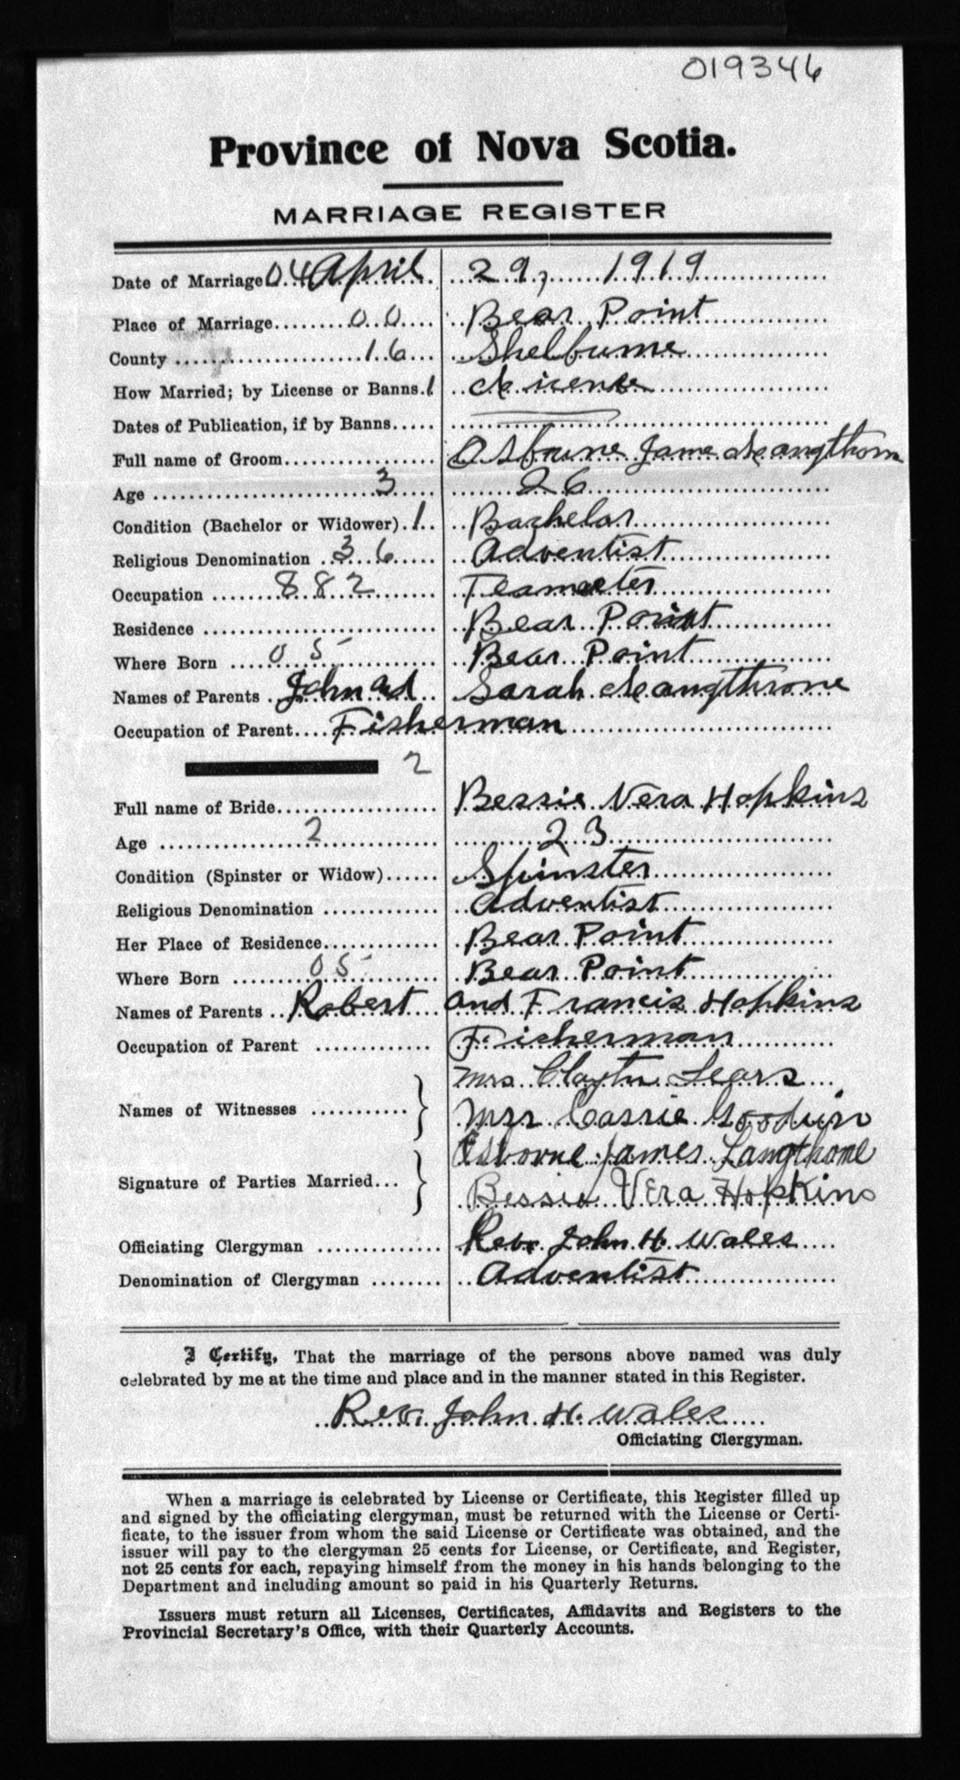 019346
Province of Nova Scotia.
MARRIAGE REGISTER
Date of Marriage 04 April 29, 1919
Place of Marriage 00 Bear Point
County 16 Shelburne
How Married; by License or Banns. 1 License
Dates of Publication, if by Banns
Full name of Groom Osburne Jame Langthorn
Age 3 26
Condition (Bachelor or Widower). 1 Bachelor
Religious Denomination 36 Adventist
Occupation 882 Teamster
Residence Bear Point
Where Born 05 Bear Point
Names of Parents John and Sarah Langthrone
Occupation of Parent Fisherman
2
Full name of Bride Bessie Vera Hopkins
Age 2 23
Condition (Spinster or Widow) Spinster
Religious Denomination Adventist
Her Place of Residence Bear Point
Where Born 05 Bear Point
Names of Parents Robert and Francis Hopkins
Occupation of Parent Fisherman
Mrs Clayton Sears
Names of Witnesses
Mrs Cassie Goodwin
Osborne James Langthorne
Signature of Parties Married
Bessie Vera Hopkins
Officiating Clergyman Rev. John H. Wales
Denomination of Clergyman Adventist
I Certify, That the marriage of the persons above named was duly
celebrated by me at the time and place and in the manner stated in this Register.
Rev. John H. Wales
Officiating Clergyman.
When a marriage is celebrated by License or Certificate, this Register filled up
and signed by the officiating clergyman, must be returned with the License or Certi-
ficate, to the issuer from whom the said License or Certificate was obtained, and the
issuer will pay to the clergyman 25 cents for License, or Certificate, and Register,
not 25 cents for each, repaying himself from the money in his hands belonging to the
Department and including amount so paid in his Quarterly Returns.
Issuers must return all Licenses, Certificates, Affidavits and Registers to the
Provincial Secretary's Office, with their Quarterly Accounts.